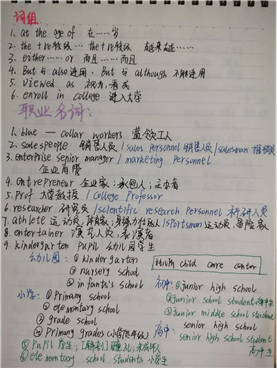 词组
1. at the age of 在……岁
2. the +比较级… the +比较级 越来越……
3. either…… or 而且……而且
4. But 与 also 连用, But 与 although 不能连用
5. viewed as 视为;看成
6. enroll in college 进入大学
职业名词:
1. blue — collar workers 蓝领工人
2. salespeople 销售人员/sales personnel 销售人员/salesman 推销员
3. enterprise senior manager / marketing personnel
企业高管
4. Entrepreneur 企业家;承包人;主办者
5. Prof 大学教授 / College Professor
6. researcher 研究员/scientific research Personnel 科研人员
7. athlete 运动员;身强力壮的人/Sportsman 运动员
8. entertainer 演艺人员;表演者
9. kindergarten pupil 幼儿园学生
幼儿园: ① kindergarten
② nursery school
③ infants' school
child care center
小学: ① Primary school
② elementary school
③ grade school
④ Primary grades (小学低年级)
⑤ Pupil 学生
⑥ elementary school students 小学生
初中: ① junior high school
② junior school student
③ junior middle school student
高中: senior high school
senior high school student
高中生